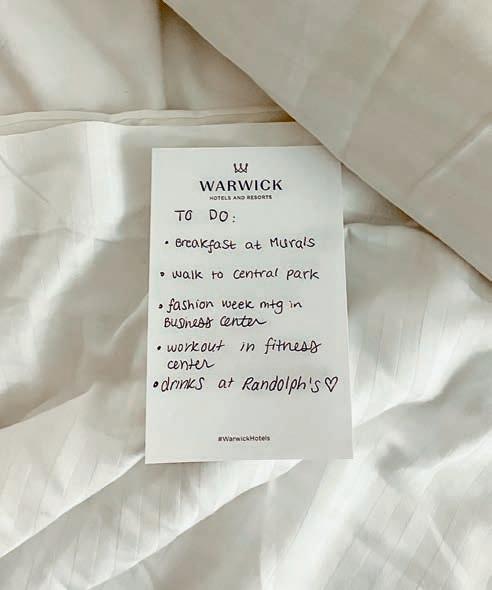 WARWICK
HOTELS AND RESORTS
TO DO:
• Breakfast at Murals
• walk to central park
• fashion week mtg in
Business center
• workout in fitness
center
• drinks at Randolph's ♡
#WarwickHotels